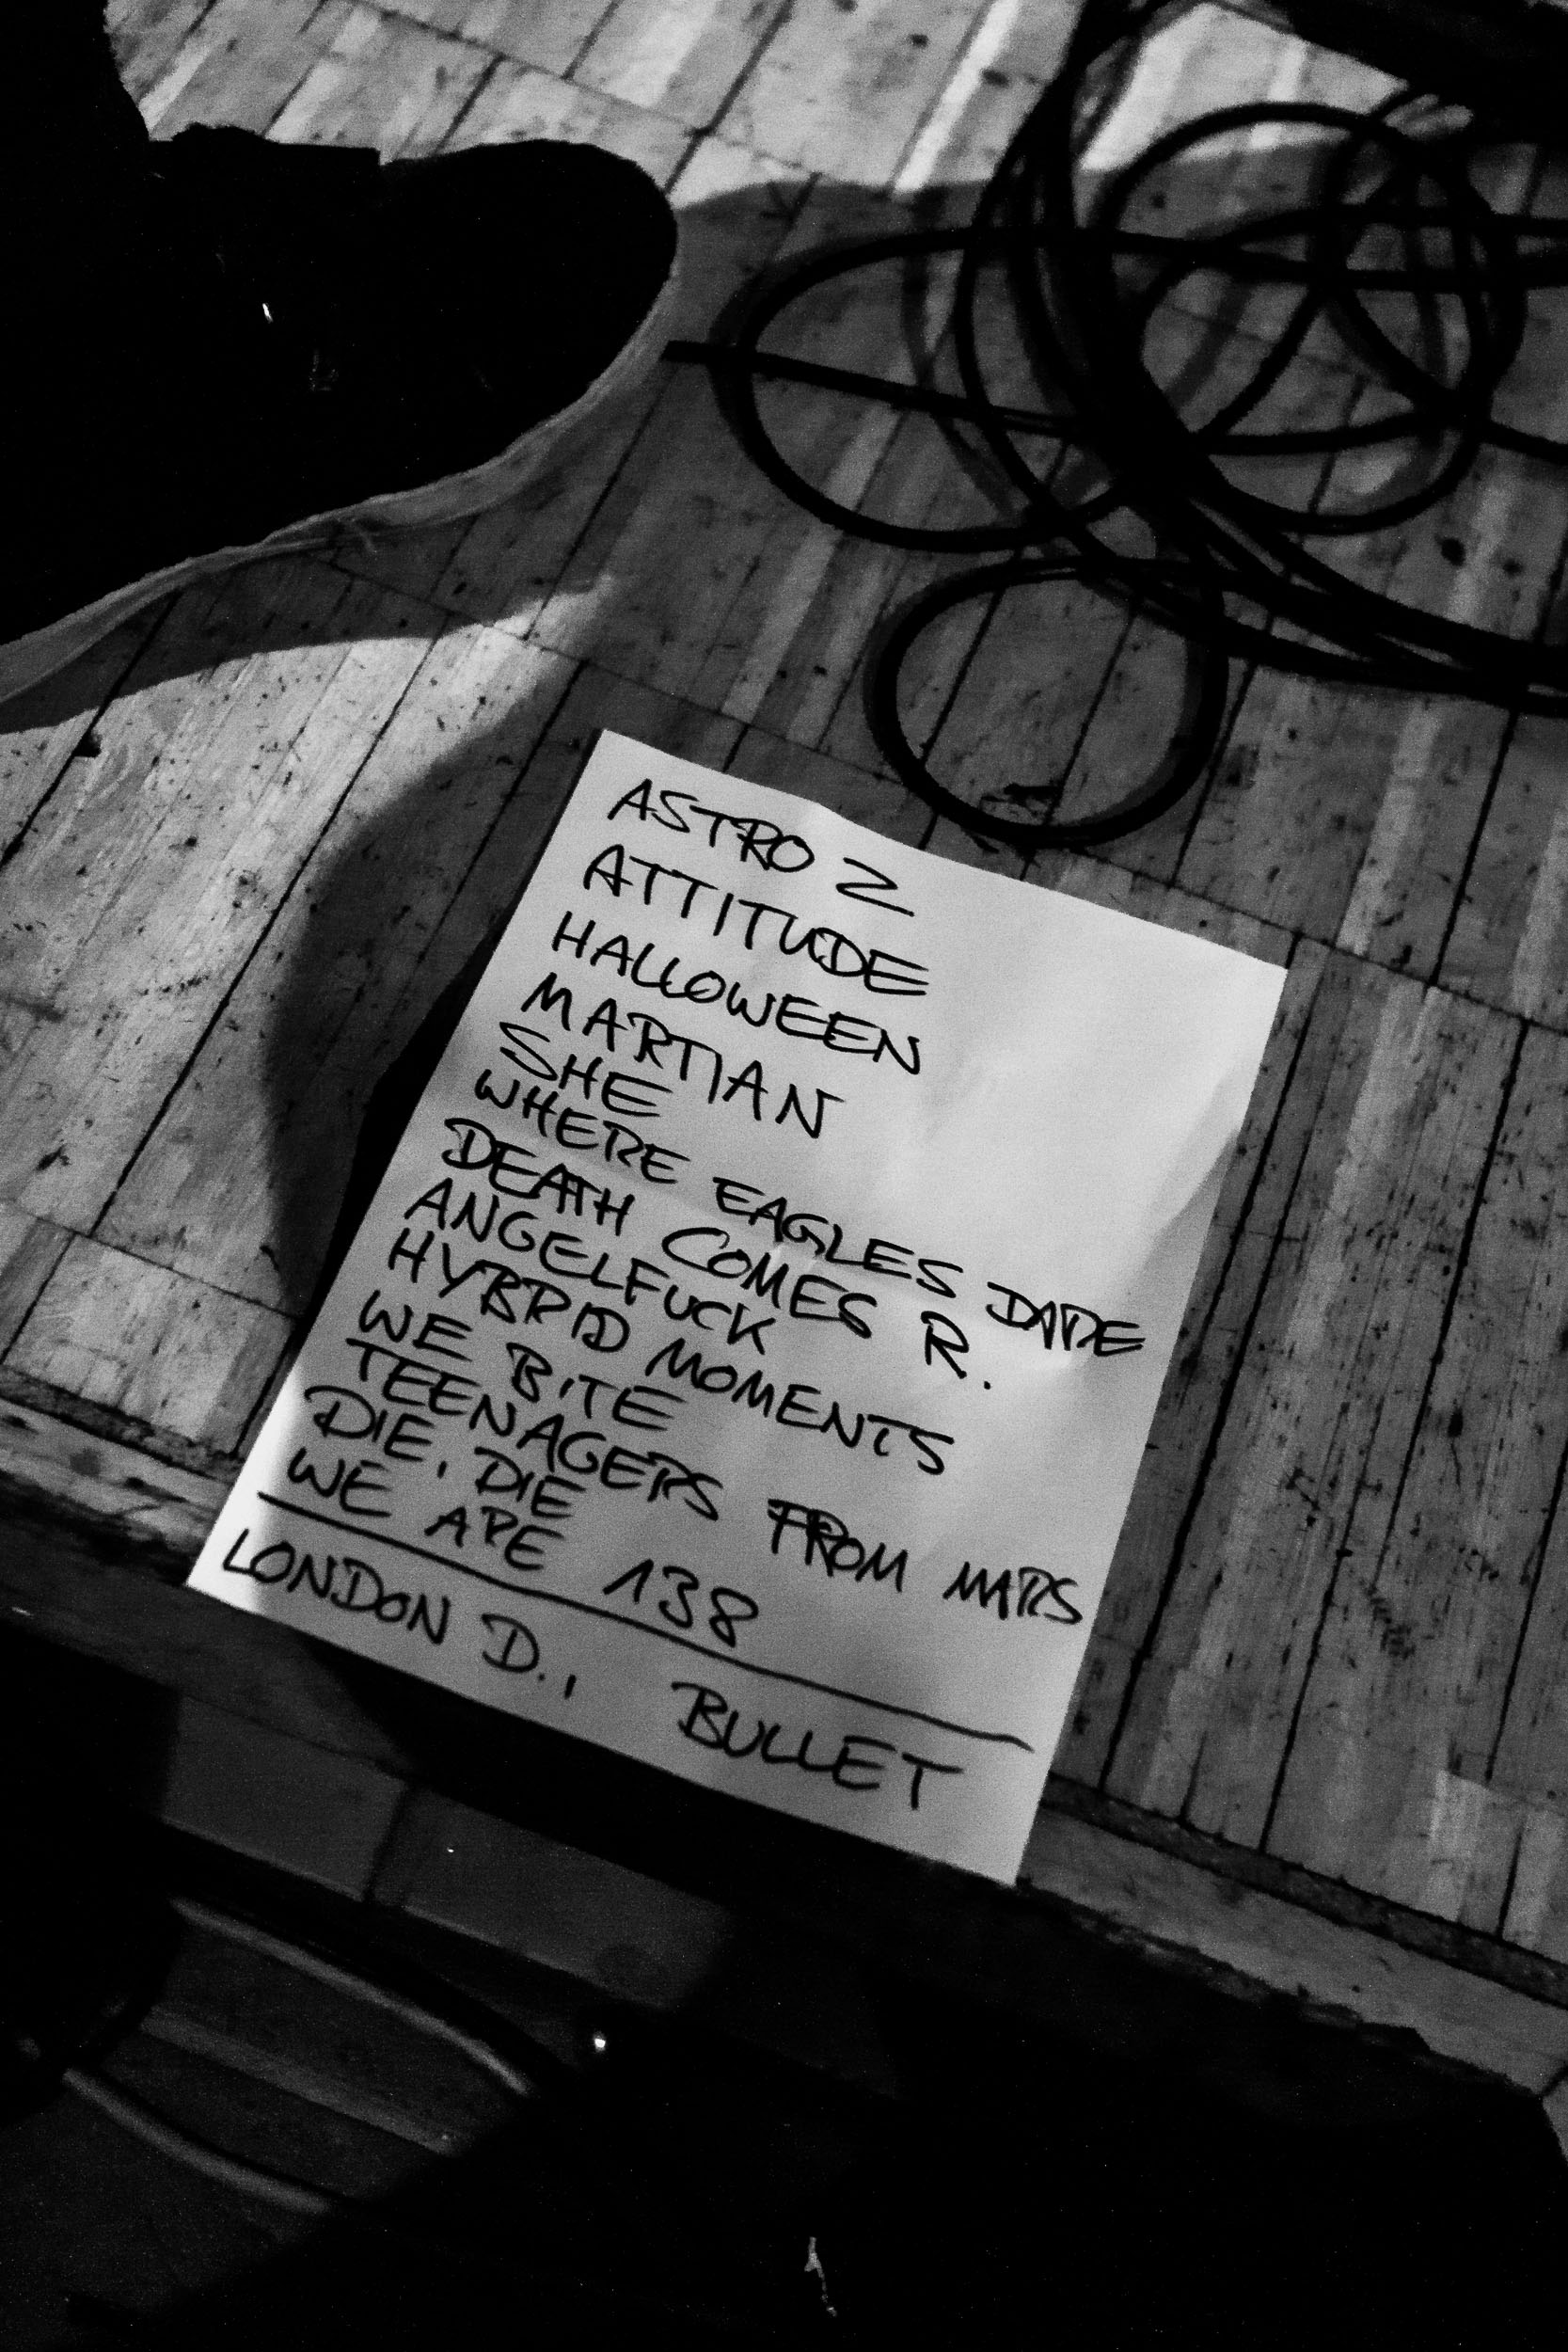 ASTRO Z
ATTITUDE
HALLOWEEN
MARTIAN
SHE
WHERE EAGLES DARE
DEATH COMES R.
ANGELFUCK
HYBRID MOMENTS
WE BITE
TEENAGERS FROM MARS
DIE, DIE
WE ARE 138
LONDON D., BULLET